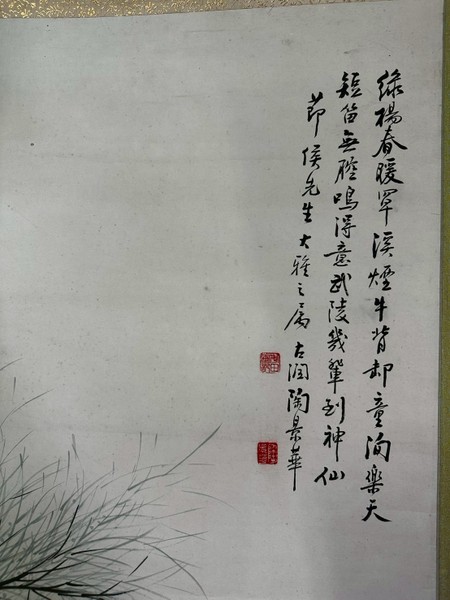 綠楊春暖罩溪煙牛背却童洵樂天
短笛無腔鳴得意武陵幾輩到神仙
節侯先生大雅之屬 古潤陶景華